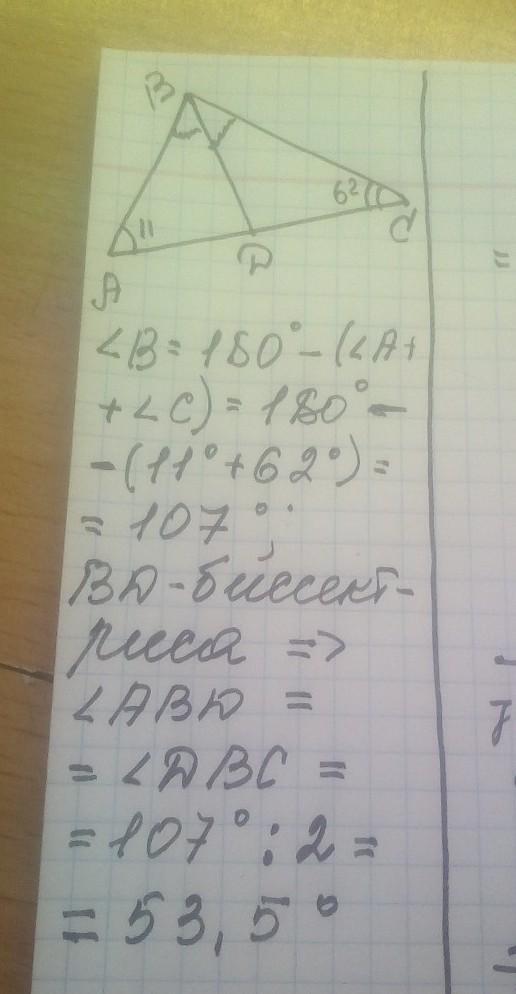 B
11
62
C
D
A
∠B = 180° - (∠A +
+ ∠C) = 180° -
- (11° + 62°) =
= 107°;
BD - биссект-
риса =>
∠ABD =
= ∠DBC =
= 107° : 2 =
= 53,5°
=
7